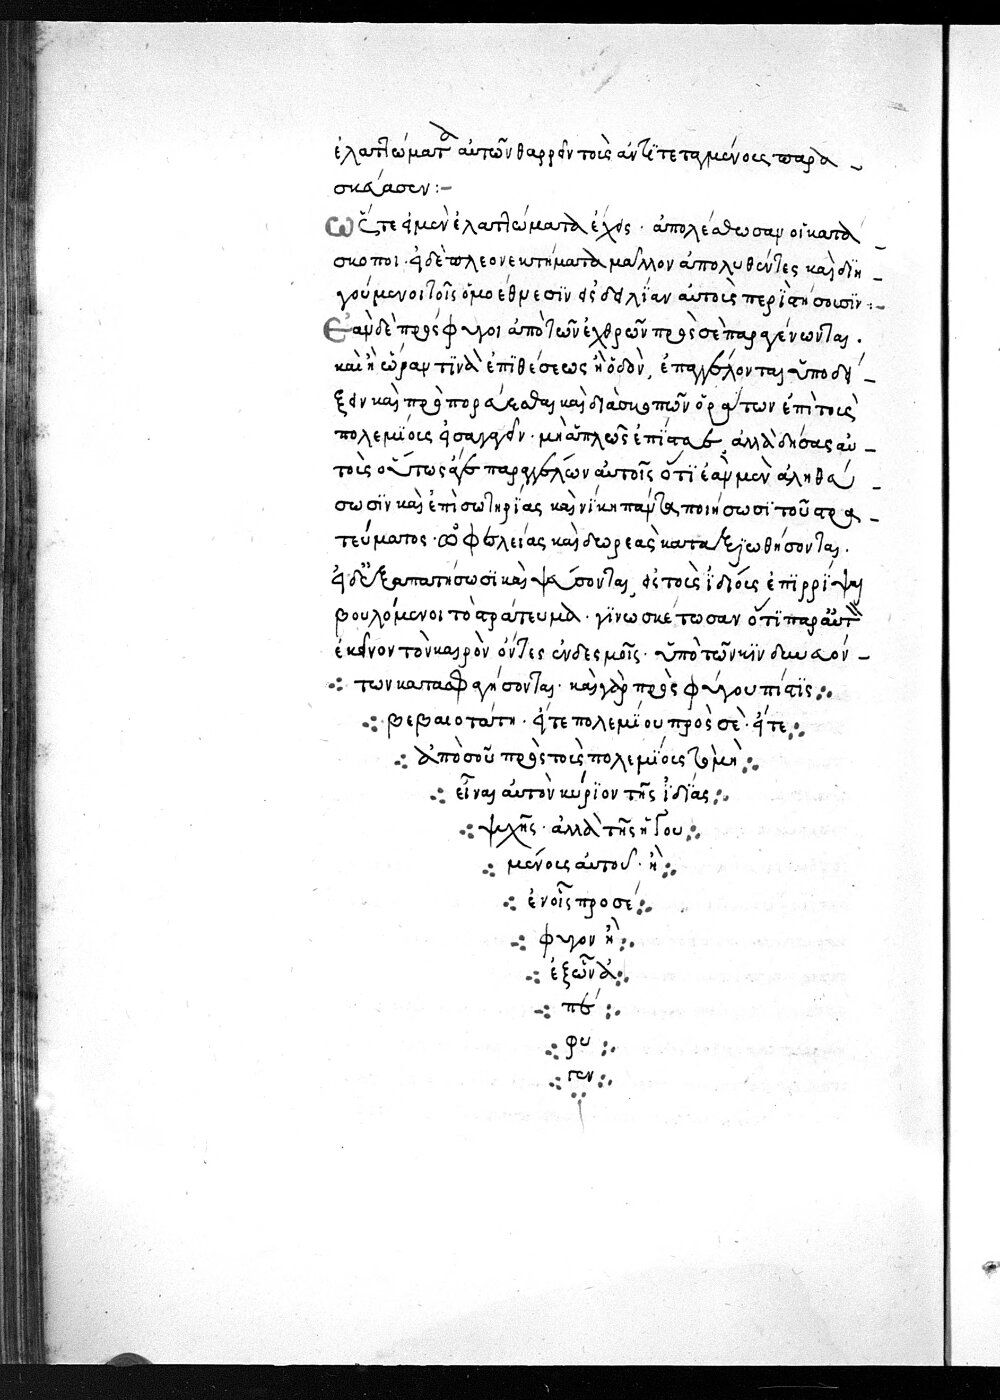 ἐλαττώματα αὐτῶν θαρρεῖν τοῖς ἀντϊτεταγμένοις παρα
σκευάσειν :-
Ὥστε εἰ μὲν ἐλαττώματα ἔχεις · ἀπολέσθωσαν οἱ κατά
σκοποι · εἰ δὲ πλεονεκτήματα μᾶλλον ἀπολυθέντες καὶ διη
γούμενοι τοῖς ὁμοέθνεσϊν εἰς δειλίαν αὐτοὺς περιστήσουσϊν :-
Ἐὰν δὲ πρόσφυγοι ἀπὸ τῶν ἐχθρῶν πρὸς σὲ παραγένωνται ·
καὶ ἢ ὥραν τϊνὰ ἐπϊθέσεως ἢ ὁδὸν, ἐπαγγέλονται ὑποδεί
ξειν καὶ προπορεύεσθαι καὶ διὰ σκοπῶν ὀρέων ἐπὶ τοὺς
πολεμίους εἰσαγαγεῖν · μὴ ἁπλῶς ἐπίστασο, ἀλλὰ δήσας αὐ
τοὺς οὕτως ἄγε παραγγέλων αὐτοῖς ὅτϊ ἐὰν μὲν ἀληθεύ
σωσϊν καὶ ἐπὶ σωτηρίας καὶ νίκη πάντα ποιήσωσϊ τοῦ στρα
τεύματος · ὠφελείας καὶ δωρεὰς καταξϊωθήσονται ·
εἰ δὲ ἐξαπατήσωσϊ καὶ ψεύσονται, εἰς τοὺς ἰδίους ἐπϊρρίψαι
βουλόμενοι τὸ στράτευμα · γϊνωσκέτωσαν ὅτϊ παρ' αὐτὸν
ἐκεῖνον τὸν καιρὸν ὄντες ἐν δεσμοῖς · ὑπὸ τῶν κϊνδυνευόν
των κατασφαγήσονται · καὶ γὰρ προσφύγου πίστϊς
βεβαιοτάτη · εἴτε πολεμίου πρὸς σὲ · εἴτε
ἀπὸ σοῦ πρὸς τοὺς πολεμίους τὸ μὴ
εἶναι αὐτὸν κύριον τῆς ἰδίας
ψυχῆς · ἀλλὰ τῆς ἡγου
μένους αὐτοῦ · ἢ
ἐν οἷς προσέ
φυγον ἢ
ἐξ ὧν ἀ
πέ
φυ
γεν